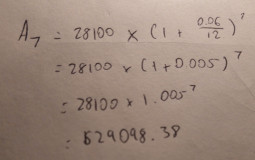 A₇ = 28100 × (1 + 0.06/12)⁷
= 28100 × (1 + 0.005)⁷
= 28100 × 1.005⁷
= $29098.38